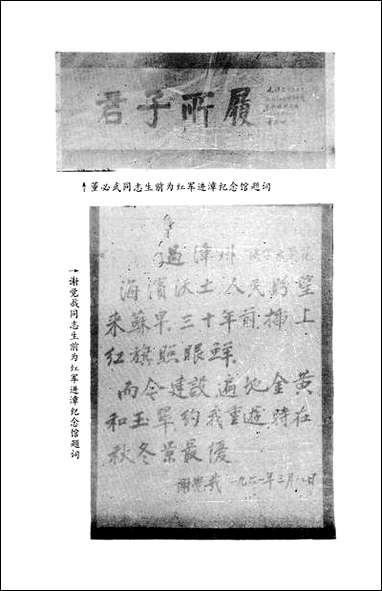 君子所履
↑董必武同志生前为红军进漳纪念馆题词
→谢觉哉同志生前为红军进漳纪念馆题词
过漳州
海濱沃土人民盼望
来蘇早三十年前插上
红旗照眼鲜
而今建設遍地金黄
和玉翠约我重遊時在
秋冬景最優
谢觉哉 一九六一年三月八日